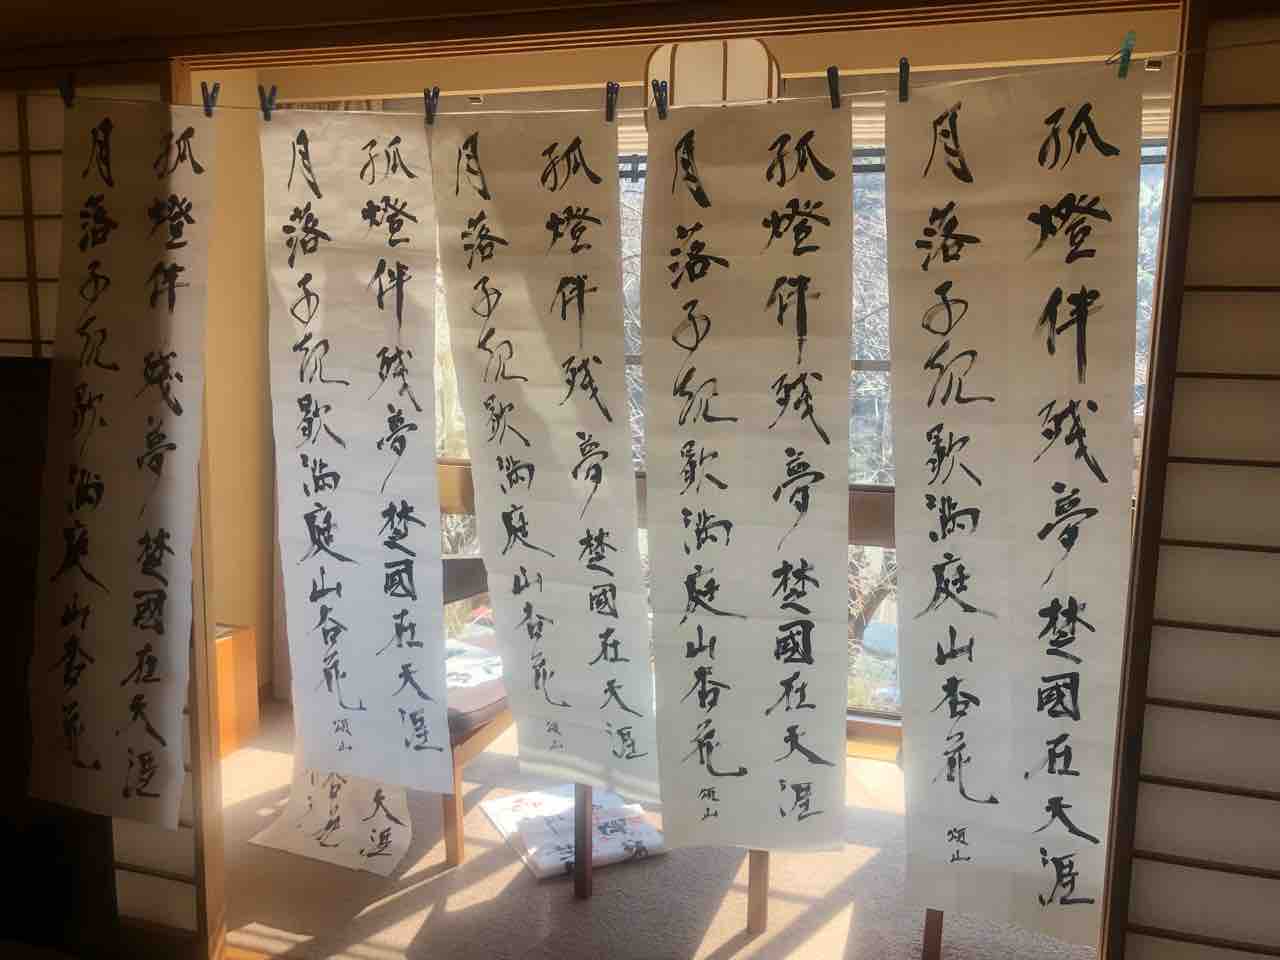 孤燈伴残夢楚國在天涯
月落子規歇満庭山杏花
頌山
孤燈伴残夢楚國在天涯
月落子規歇満庭山杏花
頌山
孤燈伴残夢楚國在天涯
月落子規歇満庭山杏花
頌山
孤燈伴残夢楚國在天涯
月落子規歇満庭山杏花
頌山
天涯
杏花
孤燈伴残夢楚國在天涯
月落子規歇満庭山杏花